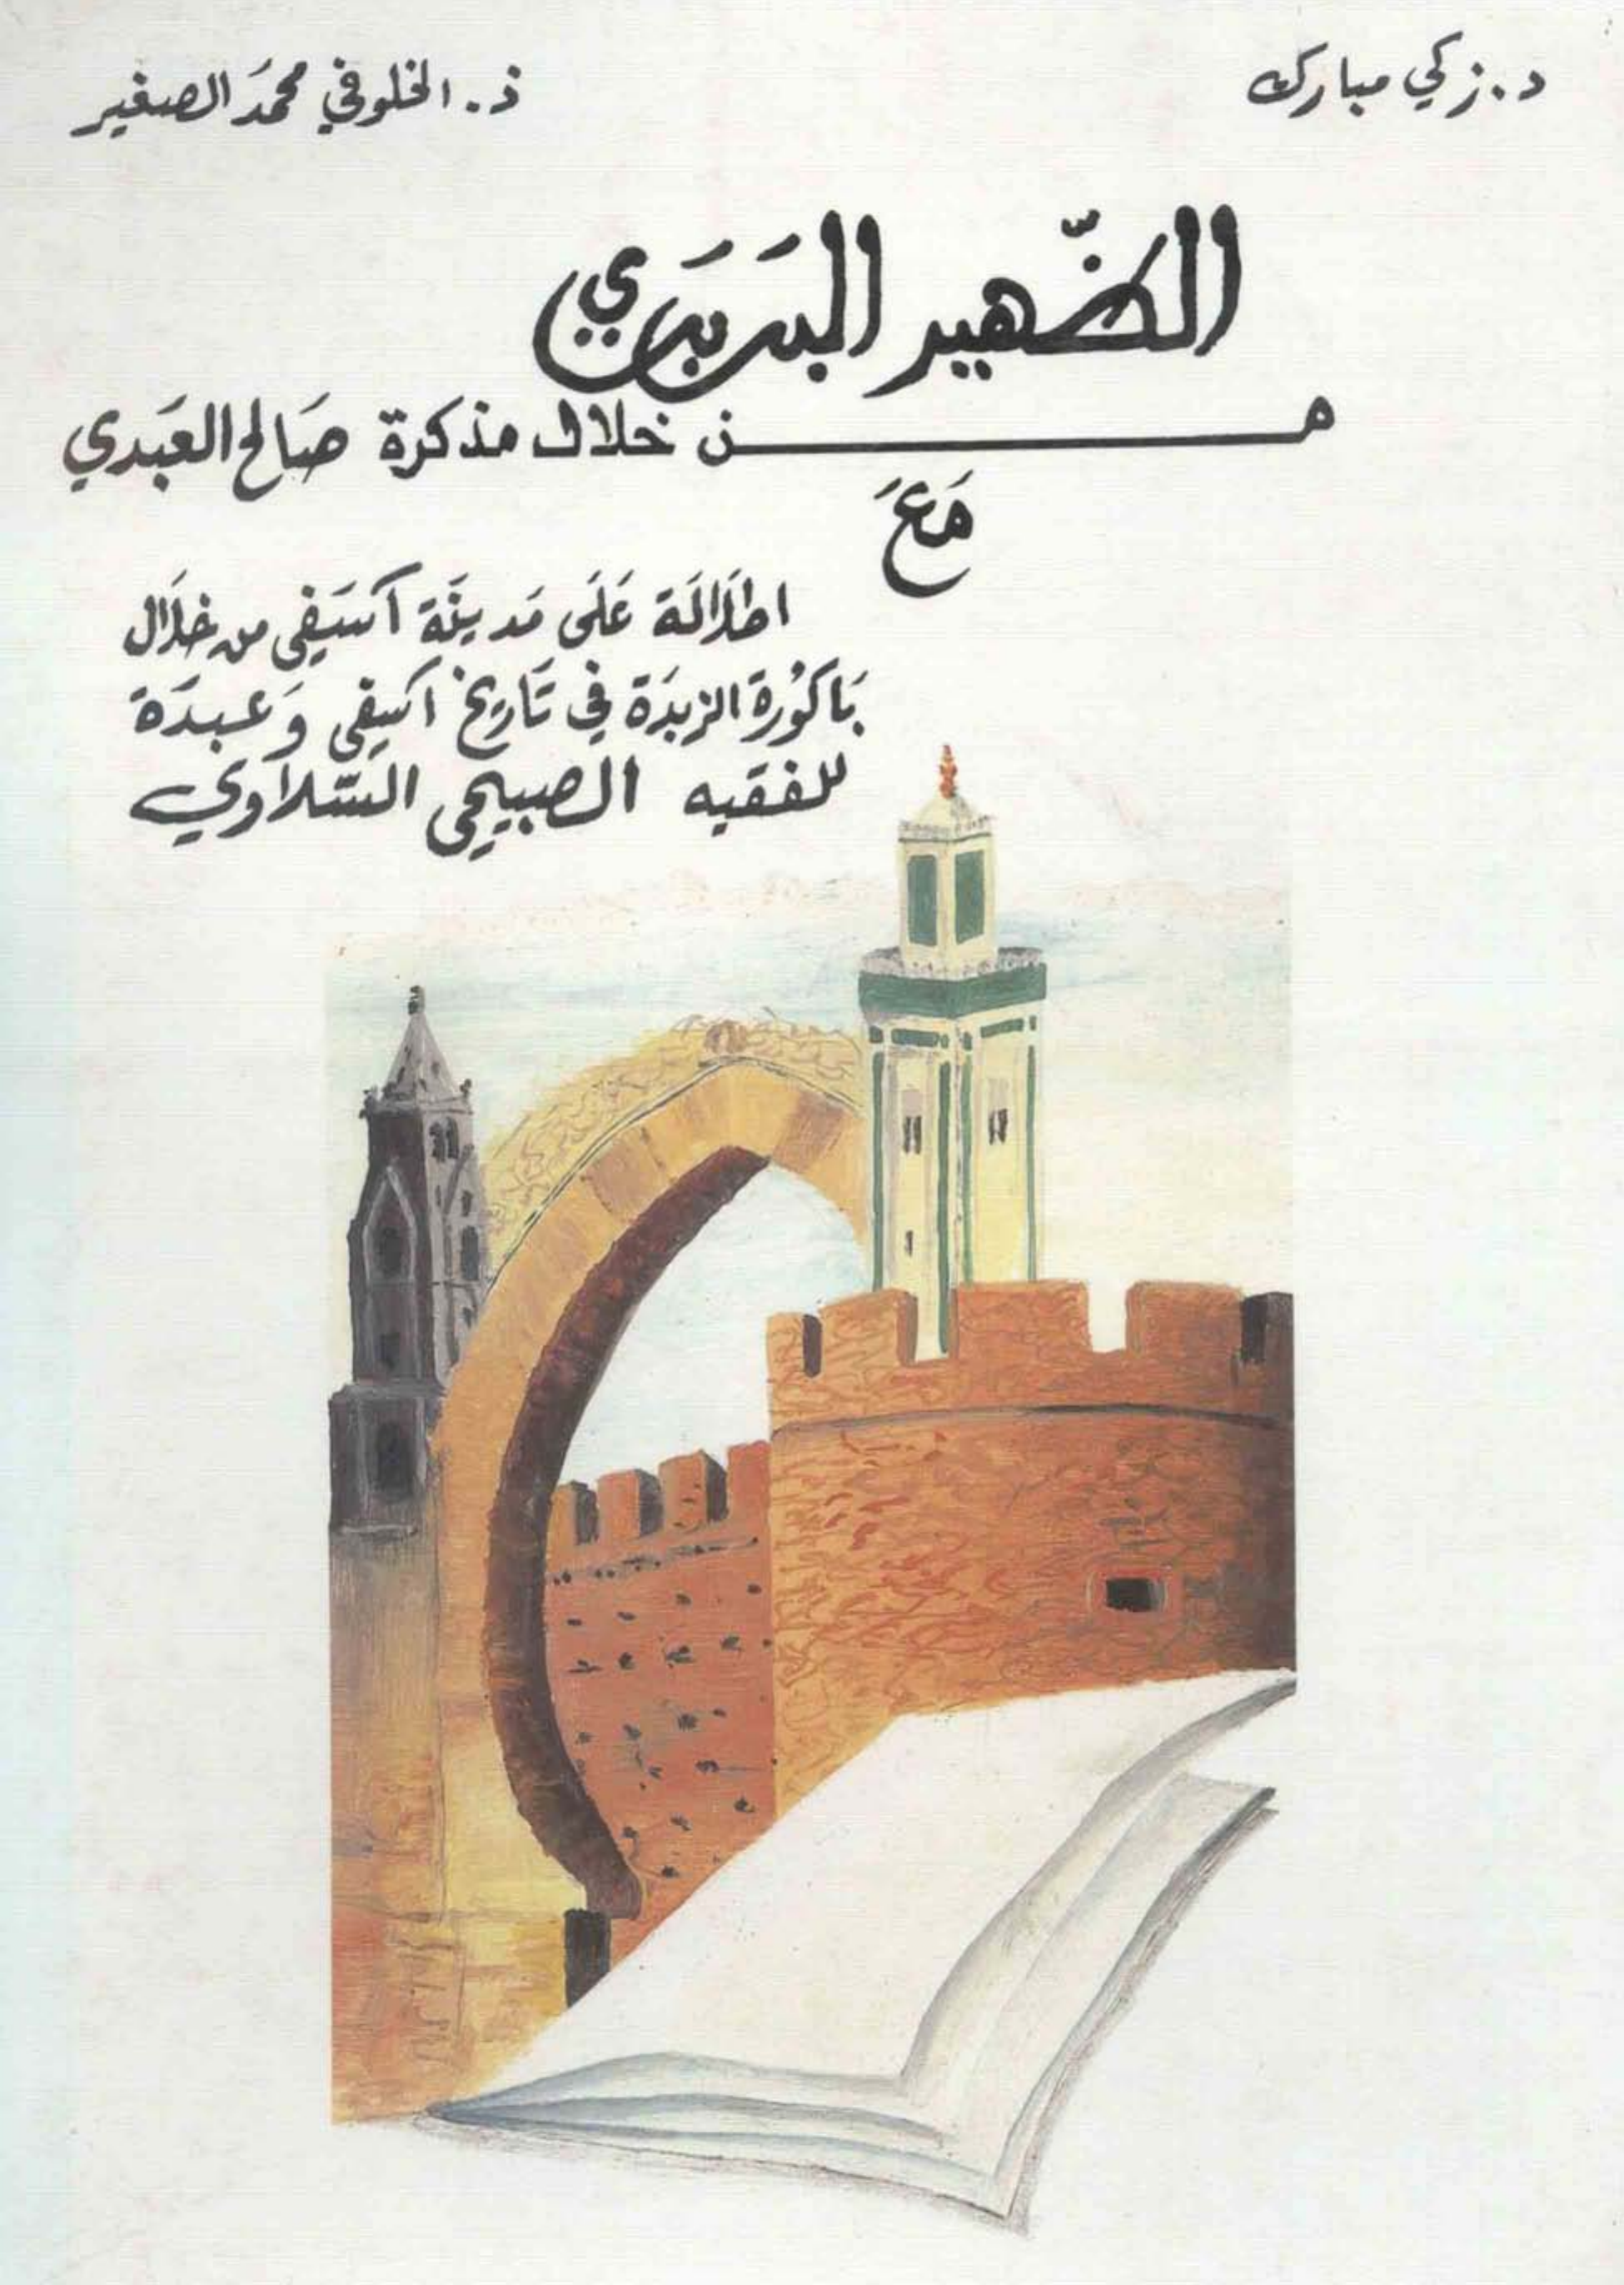 د. زكي مبارك
ذ. الخلوفي محمَد الصغير
الظّهير البَربَري
من خلال مذكرة صَالح العَبَدي
مَعَ
اطلَالَة عَلَى مَدينَة آسَفي من خلَال
بَاكُورة الزبدَة في تَاريخ اسفي وَعبدَة
للفقيه الصبيحي السّلاوي